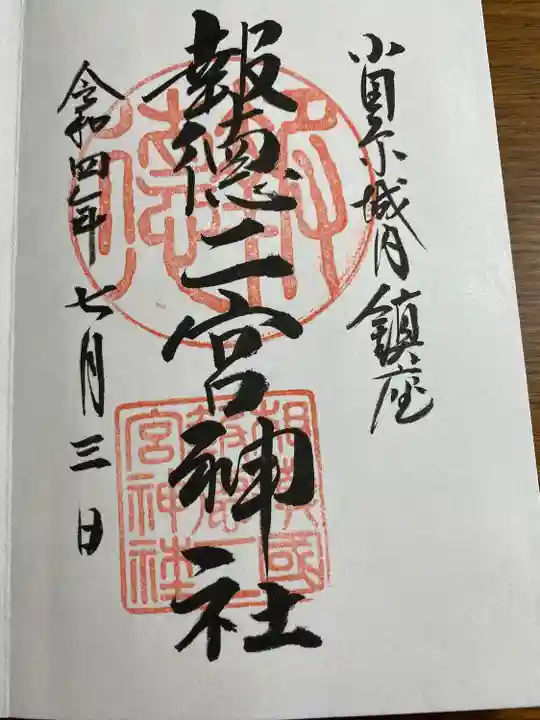 小田原城内鎮座
報徳二宮神社
令和四年七月三日
報徳
相模國
報徳二
宮神社